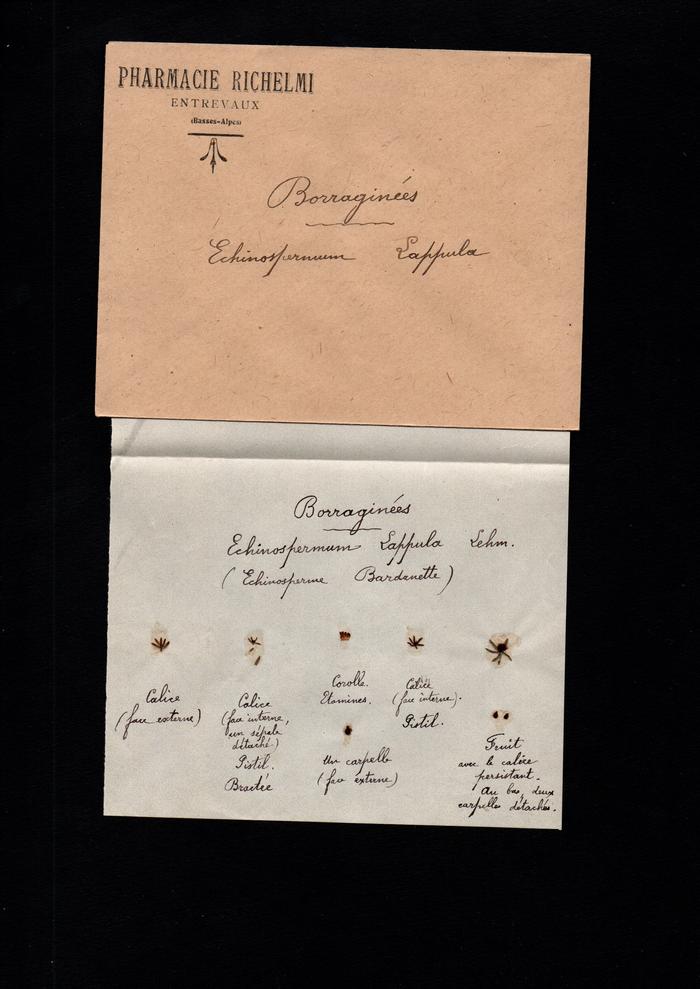 PHARMACIE RICHELMI
ENTREVAUX
(Basses-Alpes)
Borraginées
Echinospermum Lappula
Borraginées
Echinospermum Lappula Lehm.
(Echinosperme Bardanette)
Calice
(face externe)
Calice
(face interne,
un sépale
détaché)
Pistil.
Bractée
Corolle.
Etamines.
Un carpelle
(face externe)
Calice
(face interne).
Pistil.
Fruit
avec le calice
persistant.
Au bas, deux
carpelles détachés.